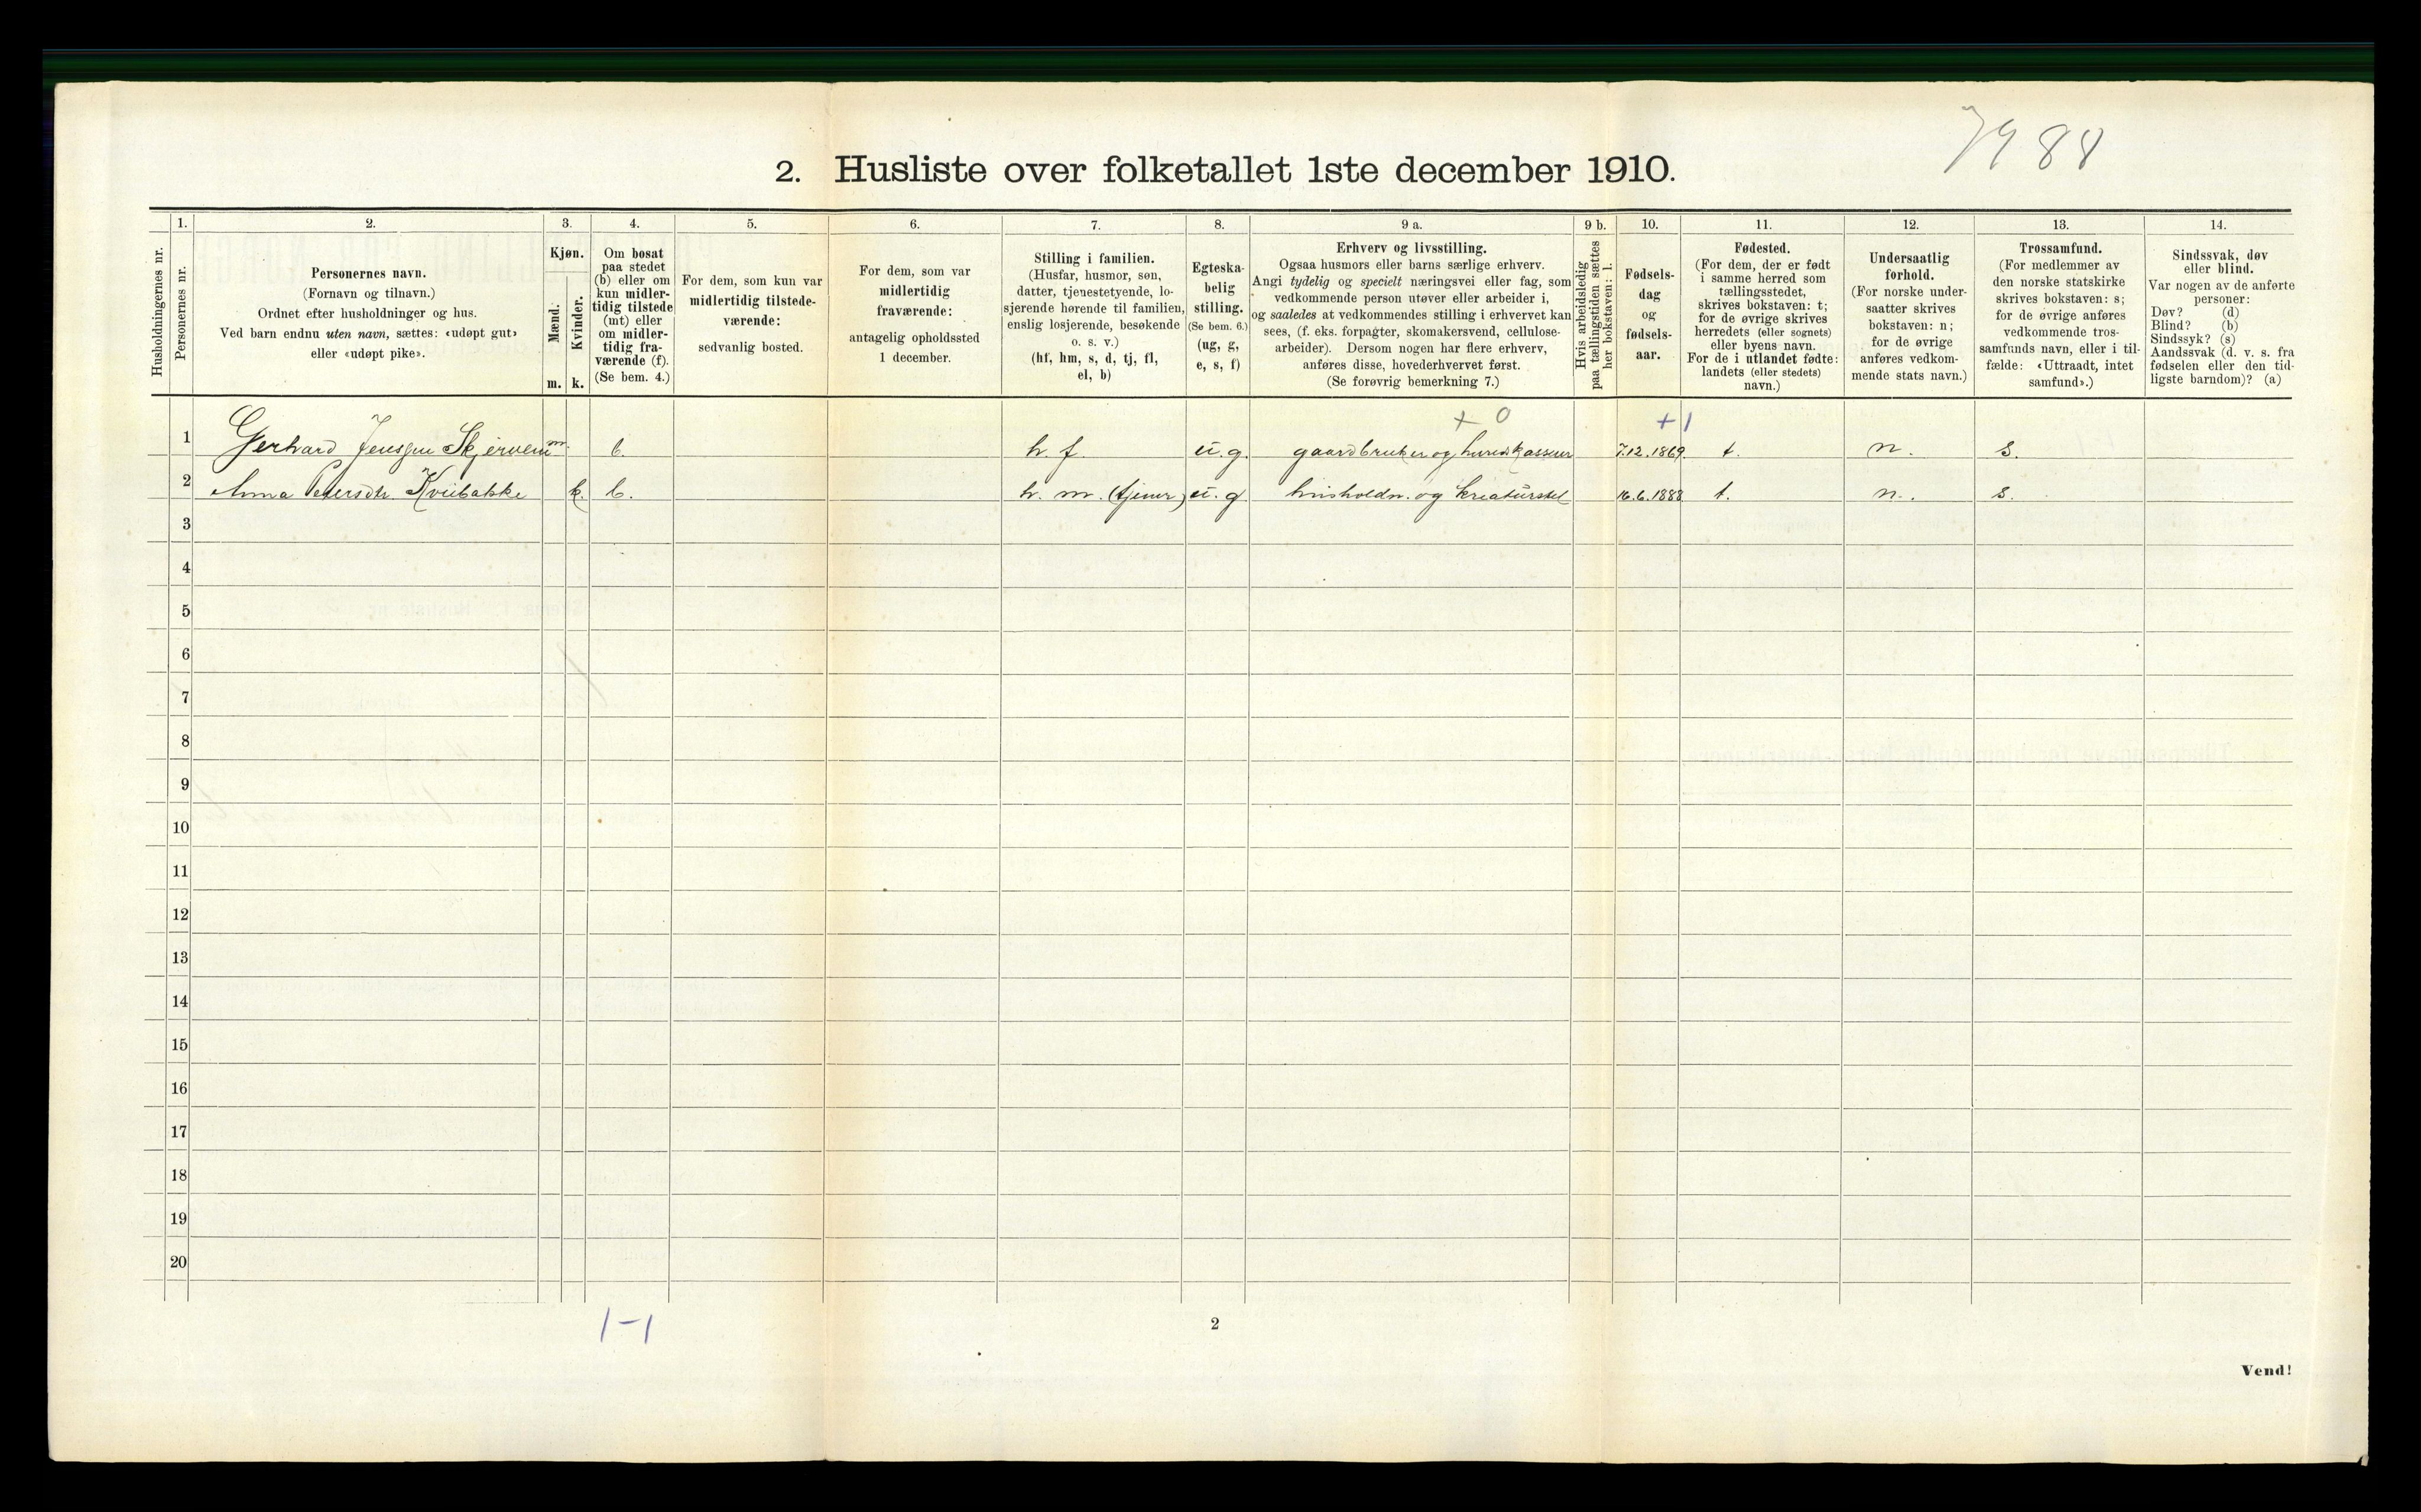 7988
2. Husliste over folketallet 1ste december 1910.
Husholdningernes nr.
1.
Personernes nr.
2.
Personernes navn.
(Fornavn og tilnavn.)
Ordnet efter husholdninger og hus.
Ved barn endnu uten navn, sættes: «udøpt gut»
eller «udøpt pike».
3.
Kjøn.
Mænd.
Kvinder.
m. k.
4.
Om bosat
paa stedet
(b) eller om
kun midler-
tidig tilstede
(mt) eller
om midler-
tidig fra-
værende (f).
(Se bem. 4.)
5.
For dem, som kun var
midlertidig tilstede-
værende:
sedvanlig bosted.
6.
For dem, som var
midlertidig
fraværende:
antagelig opholdssted
1 december.
7.
Stilling i familien.
(Husfar, husmor, søn,
datter, tjenestetyende, lo-
sjerende hørende til familien,
enslig losjerende, besøkende
o. s. v.)
(hf, hm, s, d, tj, fl,
el, b)
8.
Egteska-
belig
stilling.
(Se bem. 6.)
(ug, g,
e, s, f)
9 a.
Erhverv og livsstilling.
Ogsaa husmors eller barns særlige erhverv.
Angi tydelig og specielt næringsvei eller fag, som
vedkommende person utøver eller arbeider i,
og saaledes at vedkommendes stilling i erhvervet kan
sees, (f. eks. forpagter, skomakersvend, cellulose-
arbeider). Dersom nogen har flere erhverv,
anføres disse, hovederhvervet først.
(Se forøvrig bemerkning 7.)
9 b.
Hvis arbeidsledig
paa tællingstiden sættes
her bokstaven: l.
10.
Fødsels-
dag
og
fødsels-
aar.
11.
Fødested.
(For dem, der er født
i samme herred som
tællingsstedet,
skrives bokstaven: t;
for de øvrige skrives
herredets (eller sognets)
eller byens navn.
For de i utlandet fødte:
landets (eller stedets)
navn.)
12.
Undersaatlig
forhold.
(For norske under-
saatter skrives
bokstaven: n;
for de øvrige
anføres vedkom-
mende stats navn.)
13.
Trossamfund.
(For medlemmer av
den norske statskirke
skrives bokstaven: s;
for de øvrige anføres
vedkommende tros-
samfunds navn, eller i til-
fælde: «Uttraadt, intet
samfund».)
14.
Sindssvak, døv
eller blind.
Var nogen av de anførte
personer:
Døv? (d)
Blind? (b)
Sindssyk? (s)
Aandssvak (d. v. s. fra
fødselen eller den tid-
ligste barndom)? (a)
+ 0 +1
1 Gerhard Jenssen Skjerven m. b. h. f. u. g. gaardbruker og 7.12.1869. t. n. s.
2 Anna Petersdtr. Kvibakke k. b. h. m. (tjener) u. g. husholdn. og kreaturstel 16.6.1888 t. n. s.
3
4
5
6
7
8
9
10
11
12
13
14
15
16
17
18
19
20
1-1
2
Vend!